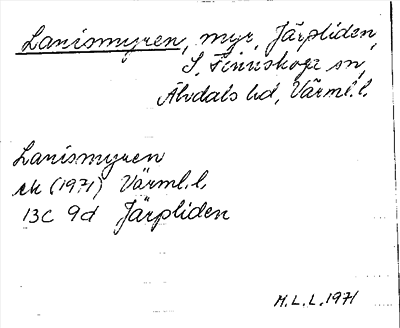 Lanismyren, myr, Järpliden,
S. Finnskoga sn,
Älvdals hd, Värml. l.
Lanismyren
ek (1971) Värml. l.
13C 9d Järpliden
M. L. L. 1971